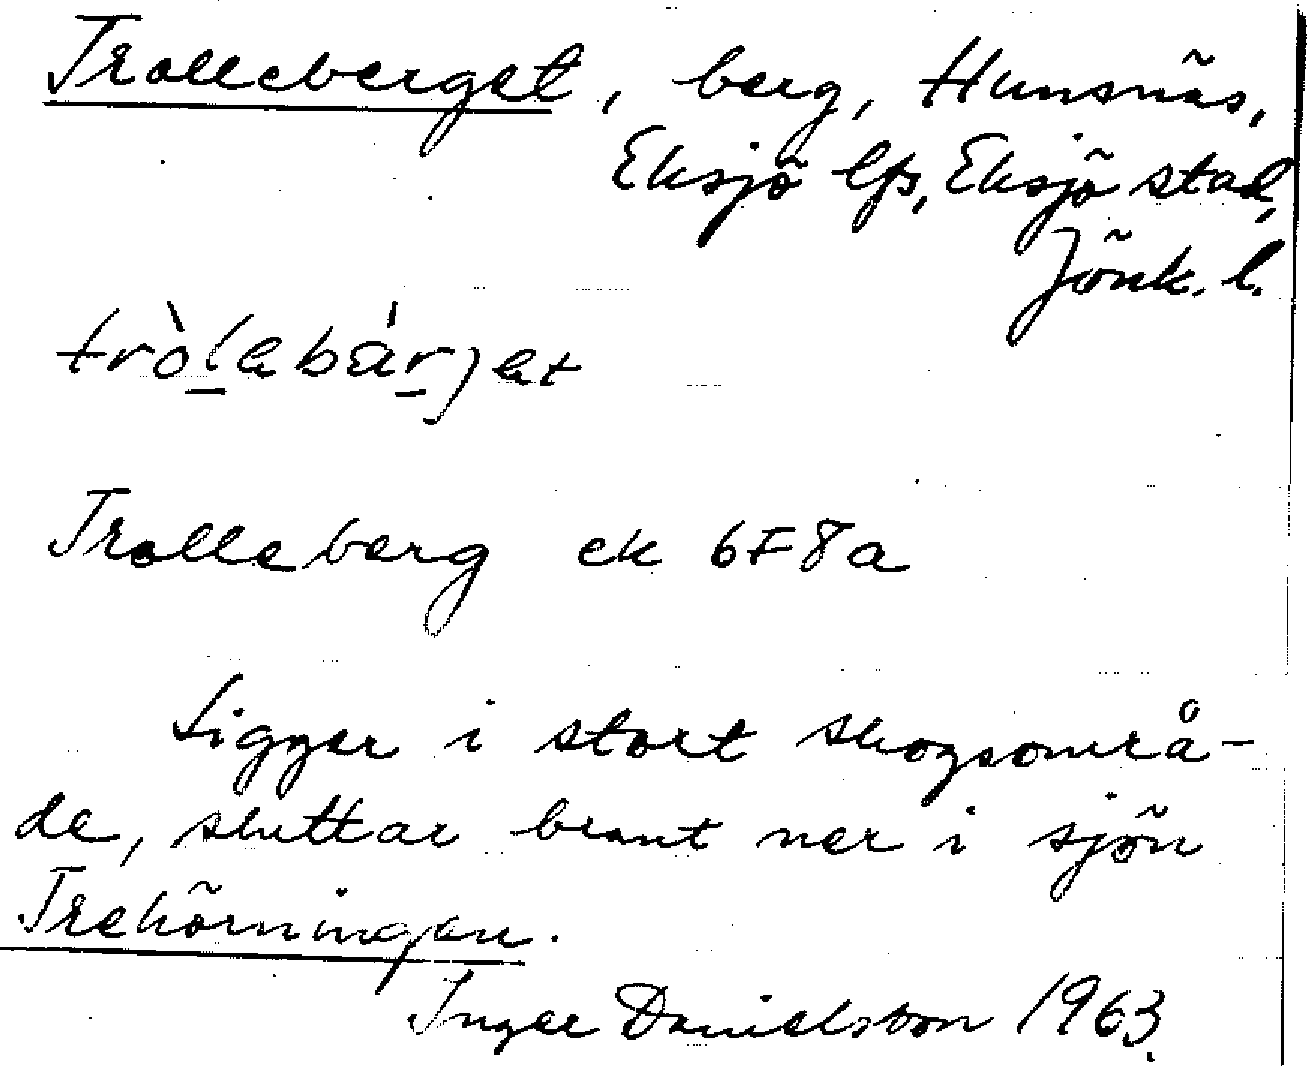 Trolleberget, berg, Hunsnäs,
Eksjö lfs, Eksjö stad,
Jönk. l.
tròlebä́rjet
Trolleberg ek 6F8a
Ligger i stort skogsområ-
de, sluttar brant ner i sjön
Trehörningen.
Inger Danielsson 1963.